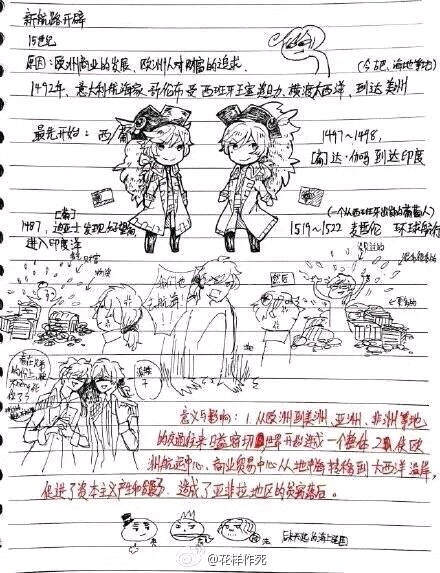 新航路开辟
15世纪
原因：欧洲商业的发展、欧洲人对财富的追求.
(今古巴、海地等地)
1492年、意大利航海家哥伦布受西班牙王室资助、横渡大西洋、到达美洲
最先开始：西/葡
1497～1498,
[葡]达·伽马到达印度
[葡]
1487,迪亚士发现好望角
进入印度洋
(一个从西班牙出发的葡萄牙人)
1519～1522 麦哲伦 环球航行
财富
然后
意义与影响：1.从欧洲到美洲、亚洲、非洲等地
的交通往来日益密切世界开始连成一个整体 2.使欧
洲航运中心、商业贸易中心从地中海转移到大西洋沿岸，
促进了资本主义产生和发展。造成了亚非拉地区的贫穷落后。
@花样作死